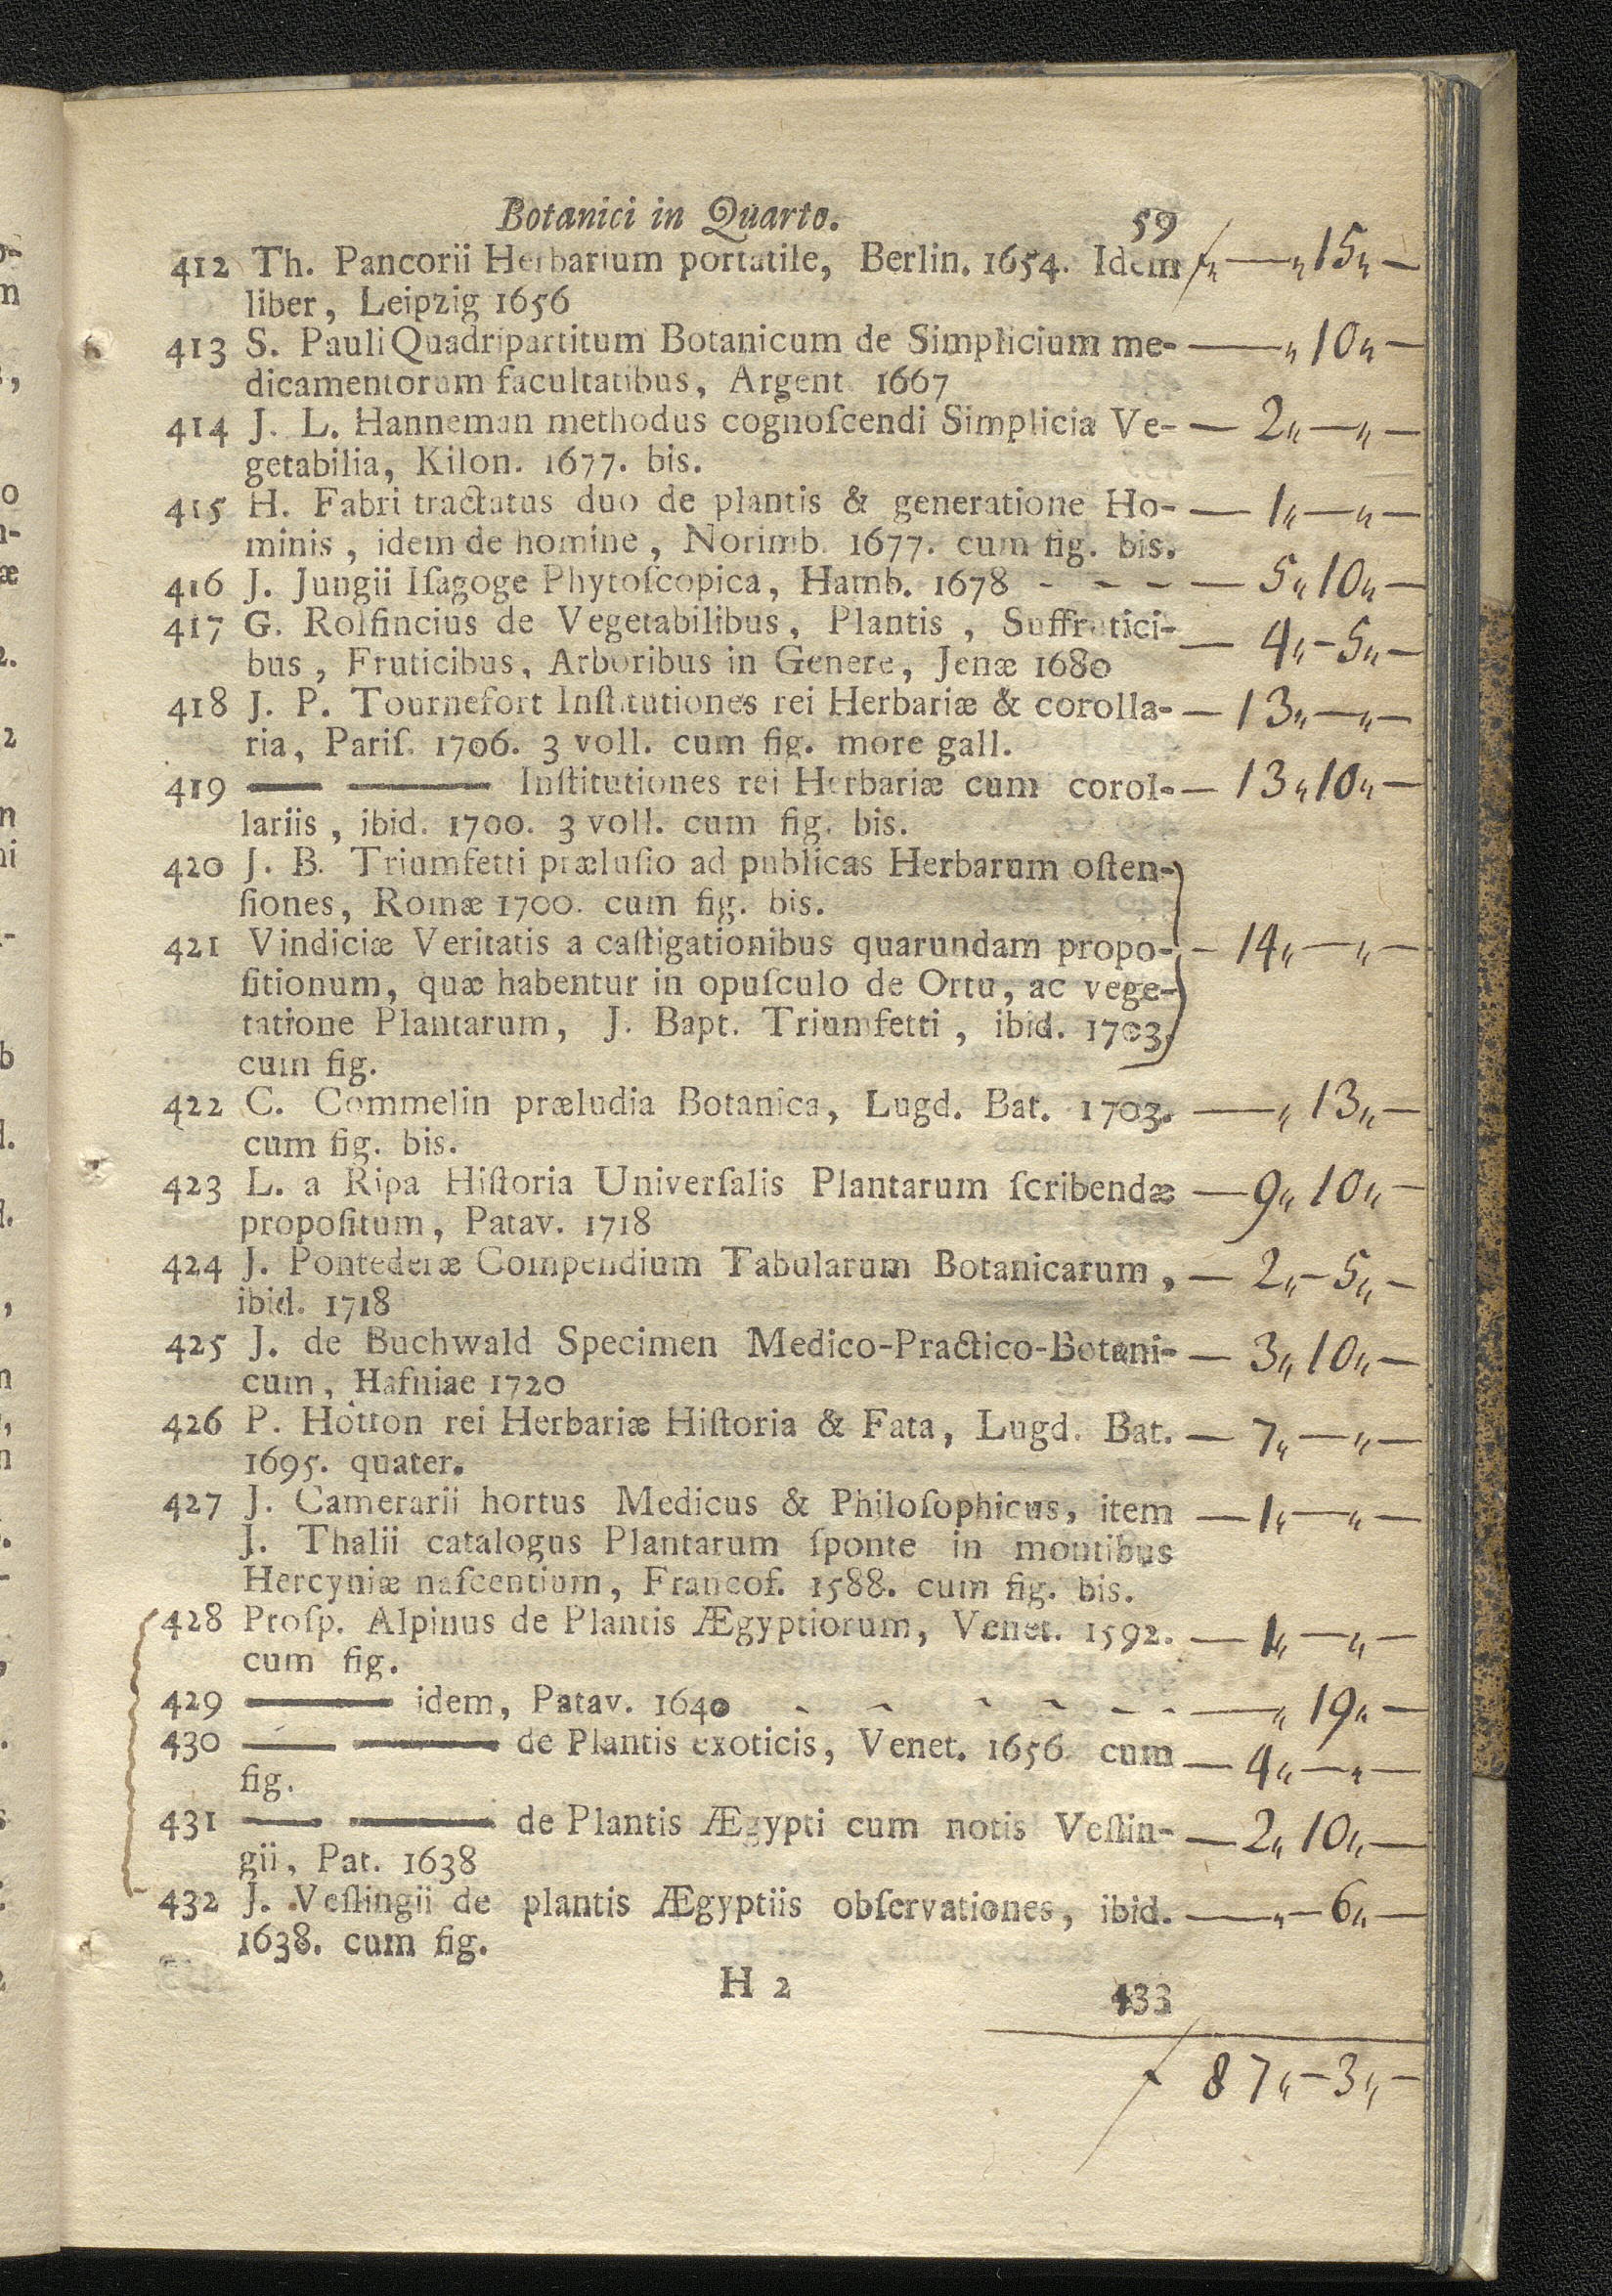 Botanici in Quarto. 59
412 Th. Pancorii Herbarium portatile, Berlin. 1654. Idem ƒ„—„15„—
liber, Leipzig 1656
413 S. Pauli Quadripartitum Botanicum de Simplicium me- —„10„—
dicamentorum facultatibus, Argent. 1667
414 J. L. Hanneman methodus cognoſcendi Simplicia Ve- — 2„—„—
getabilia, Kilon. 1677. bis.
415 H. Fabri tractatus duo de plantis & generatione Ho- — 1„—„—
minis, idem de homine, Norimb. 1677. cum fig. bis.
416 J. Jungii Iſagoge Phytoſcopica, Hamb. 1678 - - - — 5„10„—
417 G. Rolfincius de Vegetabilibus, Plantis, Suffrutici- — 4„-5„—
bus, Fruticibus, Arboribus in Genere, Jenæ 1680
418 J. P. Tournefort Inſtitutiones rei Herbariæ & corolla- — 13„—„—
ria, Pariſ. 1706. 3 voll. cum fig. more gall.
419 — — Inſtitutiones rei Herbariæ cum corol- — 13„10„—
lariis, ibid. 1700. 3 voll. cum fig. bis.
420 J. B. Triumfetti præluſio ad publicas Herbarum oſten-
ſiones, Romæ 1700. cum fig. bis.
421 Vindiciæ Veritatis a caſtigationibus quarundam propo- — 14„—„—
ſitionum, quæ habentur in opuſculo de Ortu, ac vege-
tatione Plantarum, J. Bapt. Triumfetti, ibid. 1703.
cum fig.
422 C. Commelin præludia Botanica, Lugd. Bat. 1703. —„13„—
cum fig. bis.
423 L. a Ripa Hiſtoria Univerſalis Plantarum ſcribendæ — 9„10„—
propoſitum, Patav. 1718
424 J. Pontederæ Compendium Tabularum Botanicarum, — 2„-5„—
ibid. 1718
425 J. de Buchwald Specimen Medico-Practico-Botani- — 3„10„—
cum, Hafniae 1720
426 P. Hotton rei Herbariæ Hiſtoria & Fata, Lugd. Bat. — 7„—„—
1695. quater.
427 J. Camerarii hortus Medicus & Philoſophicus, item — 1„—„—
J. Thalii catalogus Plantarum ſponte in montibus
Hercyniæ naſcentium, Francof. 1588. cum fig. bis.
428 Proſp. Alpinus de Plantis Ægyptiorum, Venet. 1592. — 1„—„—
cum fig.
429 — idem, Patav. 1640 - - - - - - —„19„—
430 — — de Plantis exoticis, Venet. 1656. cum — 4„—„—
fig.
431 — — de Plantis Ægypti cum notis Veſlin- — 2„10„—
gii, Pat. 1638
432 J. Veſlingii de plantis Ægyptiis obſervationes, ibid. —„-6„—
1638. cum fig.
H 2 433
ƒ 87„-3„—